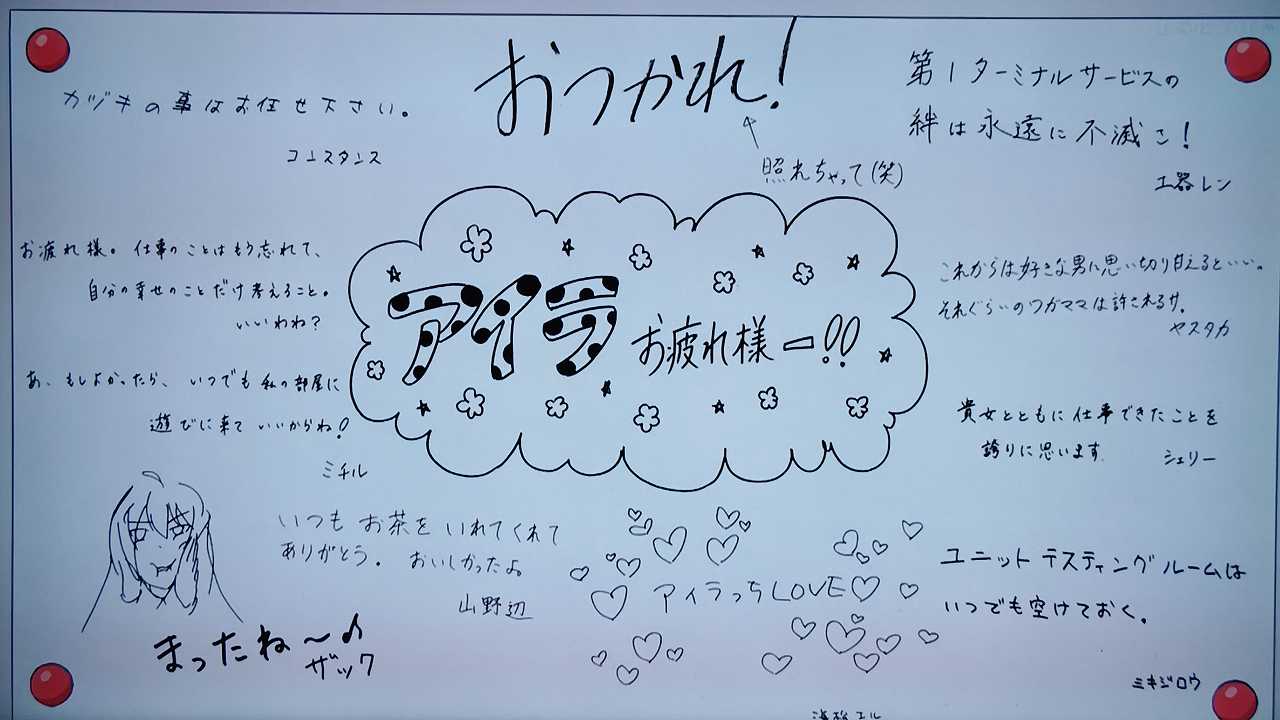 おつかれ!
照れちゃって(笑)
カヅキの事はお任せ下さい。
コンスタンス
第1ターミナルサービスの
絆は永遠に不滅さ!
工器レン
アイラ お疲れ様ー!!
お疲れ様。仕事のことはもう忘れて、
自分の幸せのことだけ考えること。
いいわね?
あ、もしよかったら、いつでも私の部屋に
遊びに来ていいからね!
ミチル
これからは好きな男に思い切り甘えるといい。
それぐらいのワガママは許されるサ。
ヤスタカ
貴女とともに仕事できたことを
誇りに思います.
シェリー
いつもお茶をいれてくれて
ありがとう。おいしかったよ。
山野辺
まったね〜♪
ザック
アイラっちLOVE♡
ユニットテスティングルームは
いつでも空けておく。
ミキジロウ